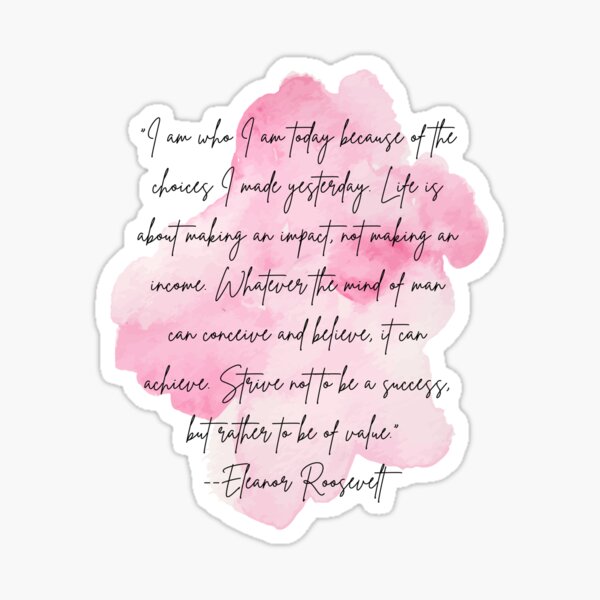 "I am who I am today because of the
choices I made yesterday. Life is
about making an impact, not making an
income. Whatever the mind of man
can conceive and believe, it can
achieve. Strive not to be a success,
but rather to be of value."
--Eleanor Roosevelt